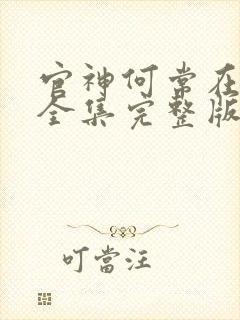 官神何常在
全集完整版
叮當汪